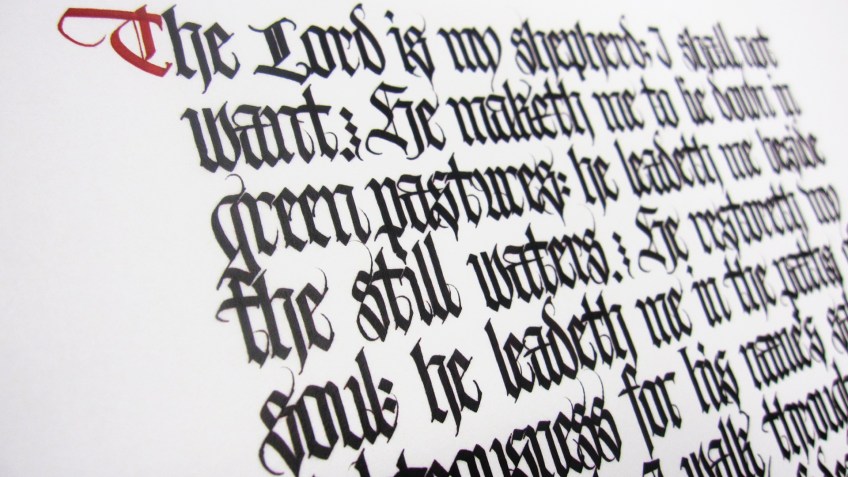 The Lord is my shepherd; I shall not
want; He maketh me to lie down in
green pastures: he leadeth me beside
the still waters; He restoreth my
soul: he leadeth me in the paths
for his name's
walk through